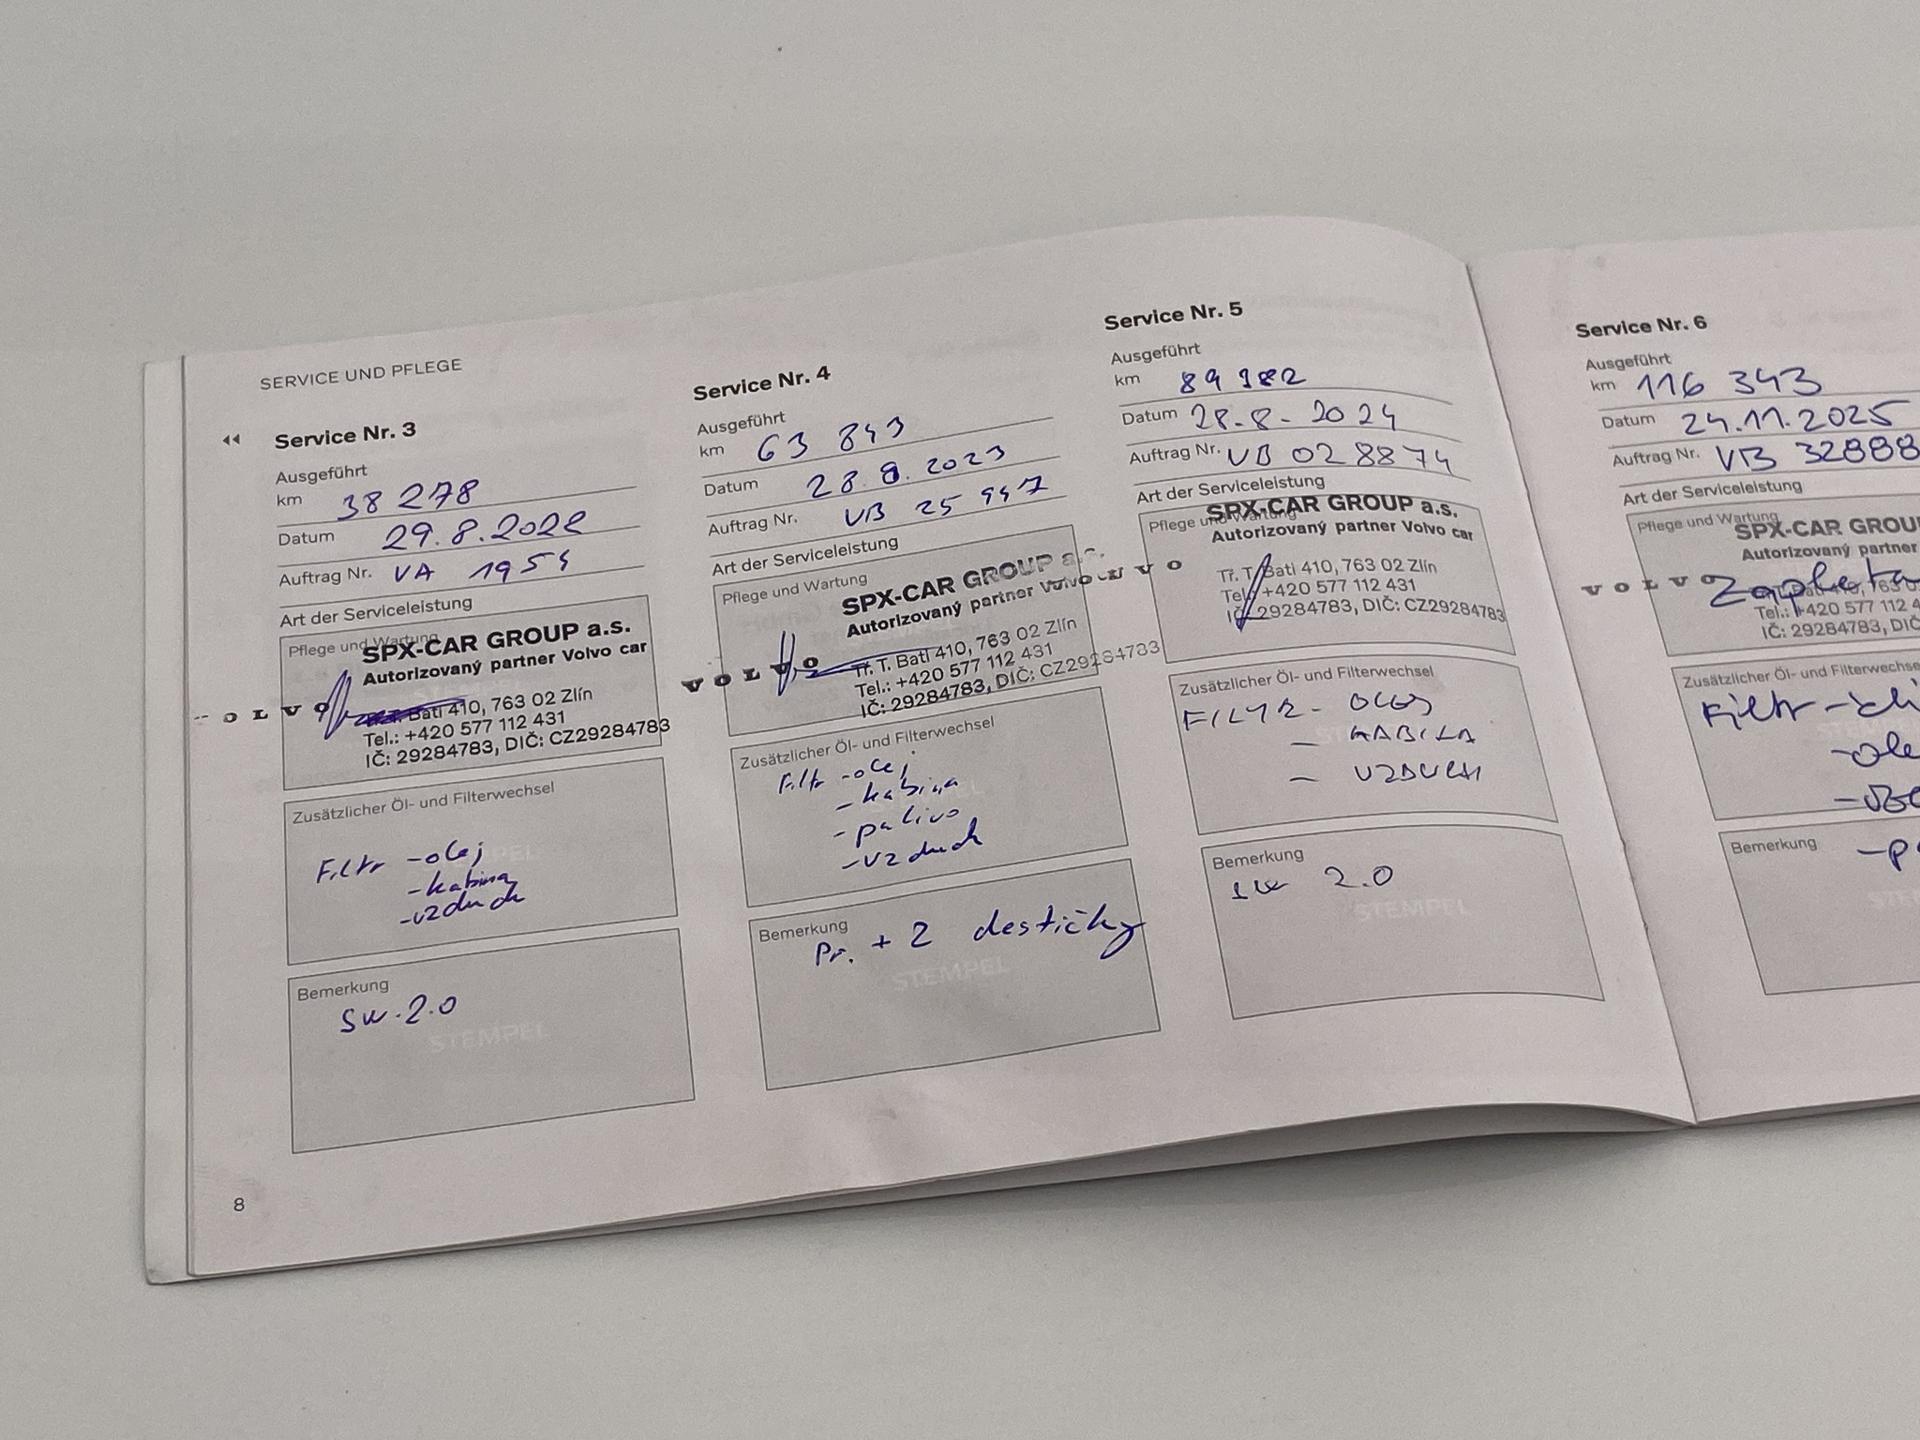 SERVICE UND PFLEGE
Service Nr. 3
Ausgeführt
km 38 278
Datum 29.8.2022
Auftrag Nr. VA 1954
Art der Serviceleistung
Pflege und Wartung
SPX-CAR GROUP a.s.
Autorizovaný partner Volvo car
VOLVO
Bati 410, 763 02 Zlín
Tel.: +420 577 112 431
IČ: 29284783, DIČ: CZ29284783
Zusätzlicher Öl- und Filterwechsel
Filtr - olej
- kabina
- vzduch
Bemerkung
SW. 2.0
STEMPEL
8
Service Nr. 4
Ausgeführt
km 63 843
Datum 28.8.2023
Auftrag Nr. VB 25 947
Art der Serviceleistung
Pflege und Wartung
SPX-CAR GROUP a.s.
Autorizovaný partner Volvo
VOLVO
Tř. T. Bati 410, 763 02 Zlín
Tel.: +420 577 112 431
IČ: 29284783, DIČ: CZ29284783
Zusätzlicher Öl- und Filterwechsel
Filtr - olej
- kabina
- palivo
- vzduch
Bemerkung
Pr. + 2 destičky
STEMPEL
Service Nr. 5
Ausgeführt
km 89 982
Datum 28.8.2024
Auftrag Nr. VB 028874
Art der Serviceleistung
Pflege und Wartung
SPX-CAR GROUP a.s.
Autorizovaný partner Volvo car
Tř. T. Bati 410, 763 02 Zlín
Tel.: +420 577 112 431
IČ: 29284783, DIČ: CZ29284783
Zusätzlicher Öl- und Filterwechsel
FILTR - OLEJ
- KABINA
- VZDUCH
Bemerkung
SW 2.0
STEMPEL
Service Nr. 6
Ausgeführt
km 116 343
Datum 24.11.2025
Auftrag Nr. VB 32888
Art der Serviceleistung
Pflege und Wartung
SPX-CAR GROU
Autorizovaný partner
VOLVO
Tel.: +420 577 112 4
IČ: 29284783, DIČ
Zusätzlicher Öl- und Filterwechse
Filtr
- ole
Bemerkung
- p